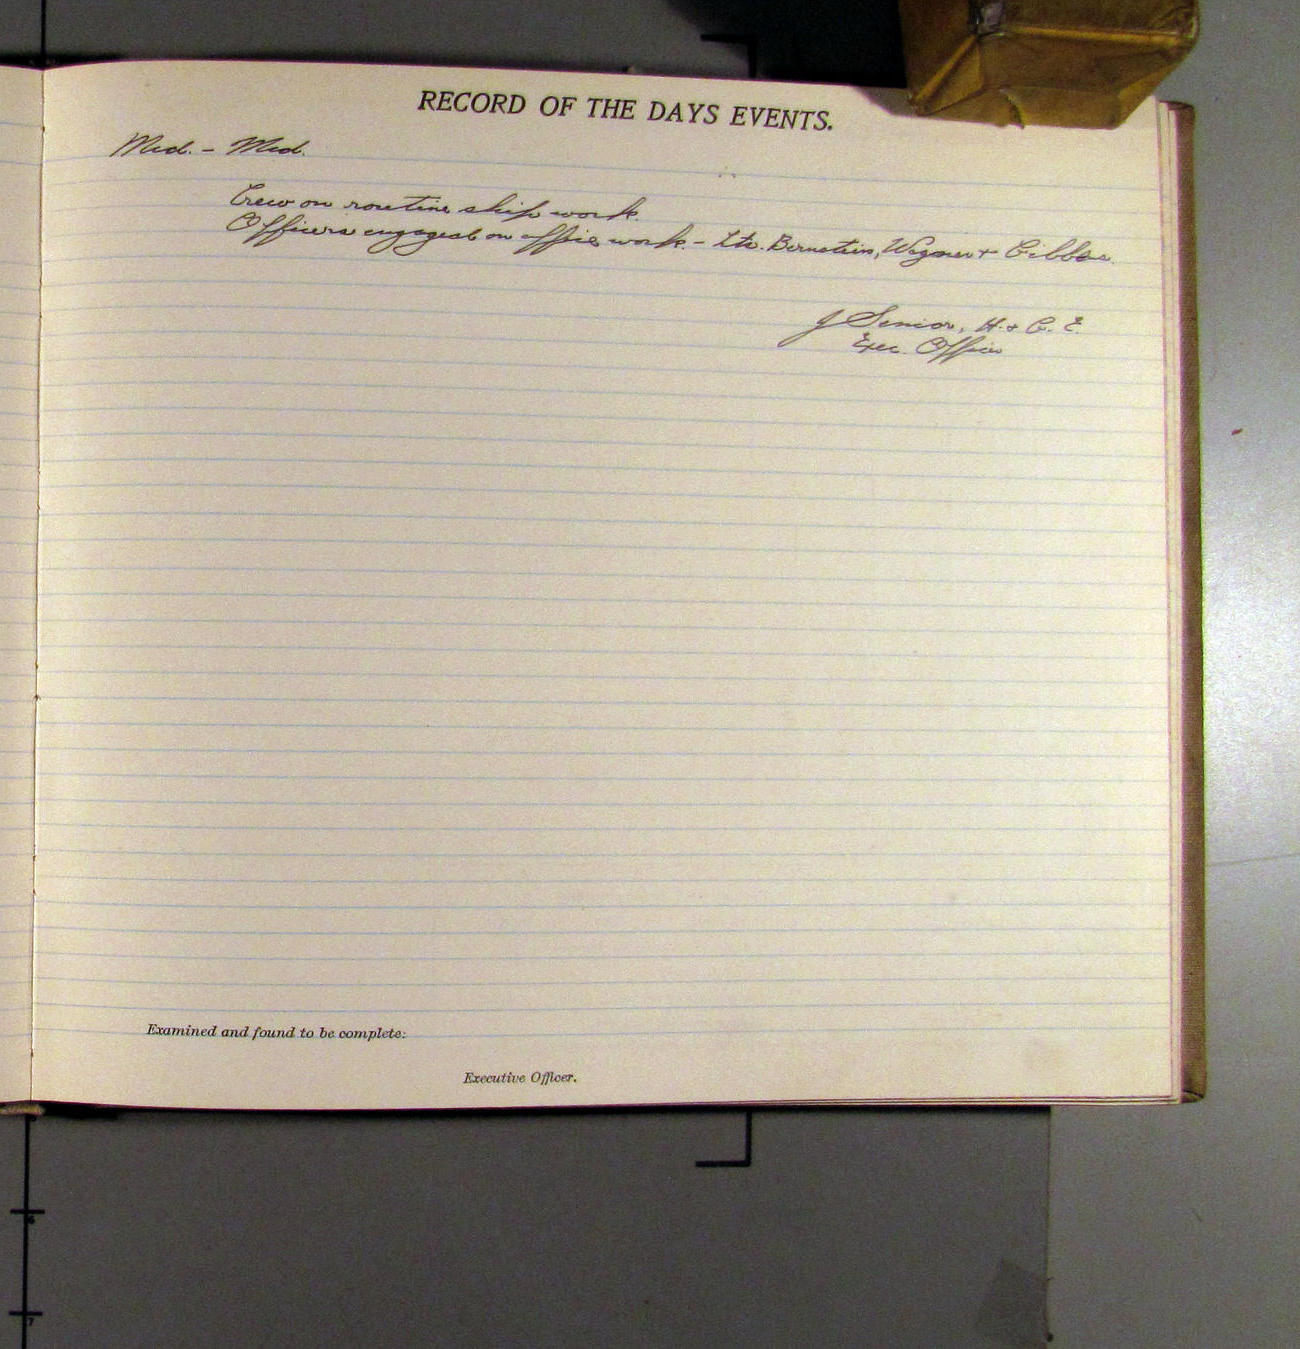 RECORD OF THE DAYS EVENTS.
Mid. - Mid.
Crew on routine ship work.
Officers engaged on office work - Lts. Bernstein, Wagner + Gibbs.
J Senior, H. & G. E.
Exec. Officer
Examined and found to be complete:
Executive Officer.
6
7